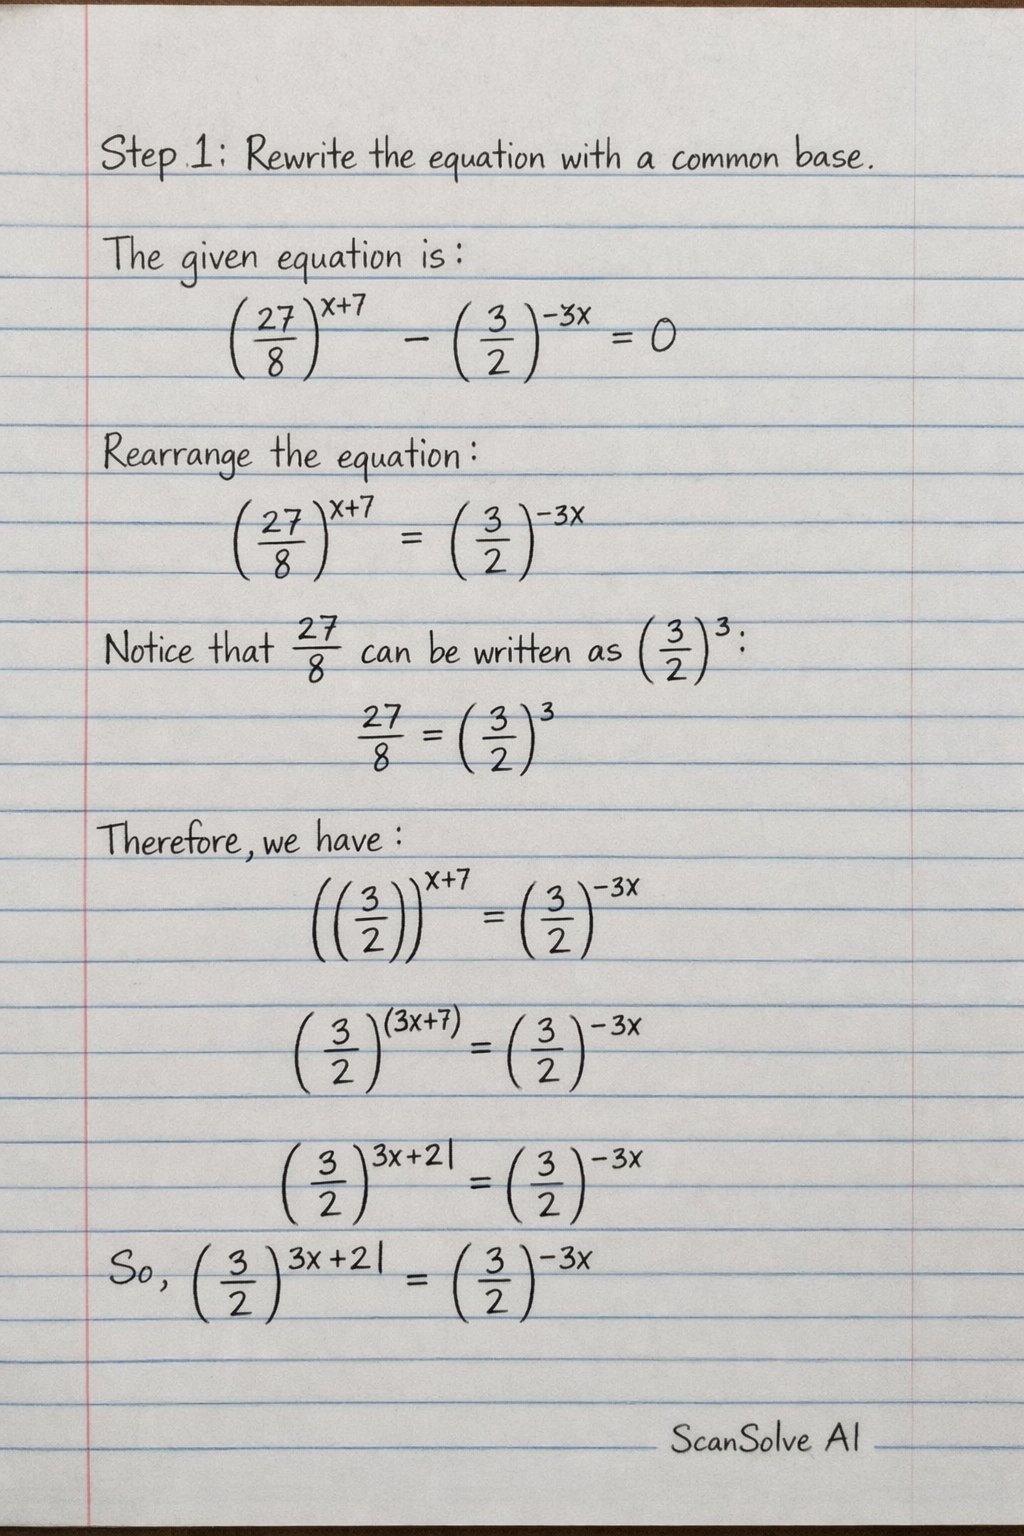 Step 1: Rewrite the equation with a common base.
The given equation is:
(27/8)^(x+7) - (3/2)^(-3x) = 0
Rearrange the equation:
(27/8)^(x+7) = (3/2)^(-3x)
Notice that 27/8 can be written as (3/2)^3:
27/8 = (3/2)^3
Therefore, we have:
((3/2))^(x+7) = (3/2)^(-3x)
(3/2)^(3x+7) = (3/2)^(-3x)
(3/2)^(3x+21) = (3/2)^(-3x)
So, (3/2)^(3x+21) = (3/2)^(-3x)
ScanSolve AI